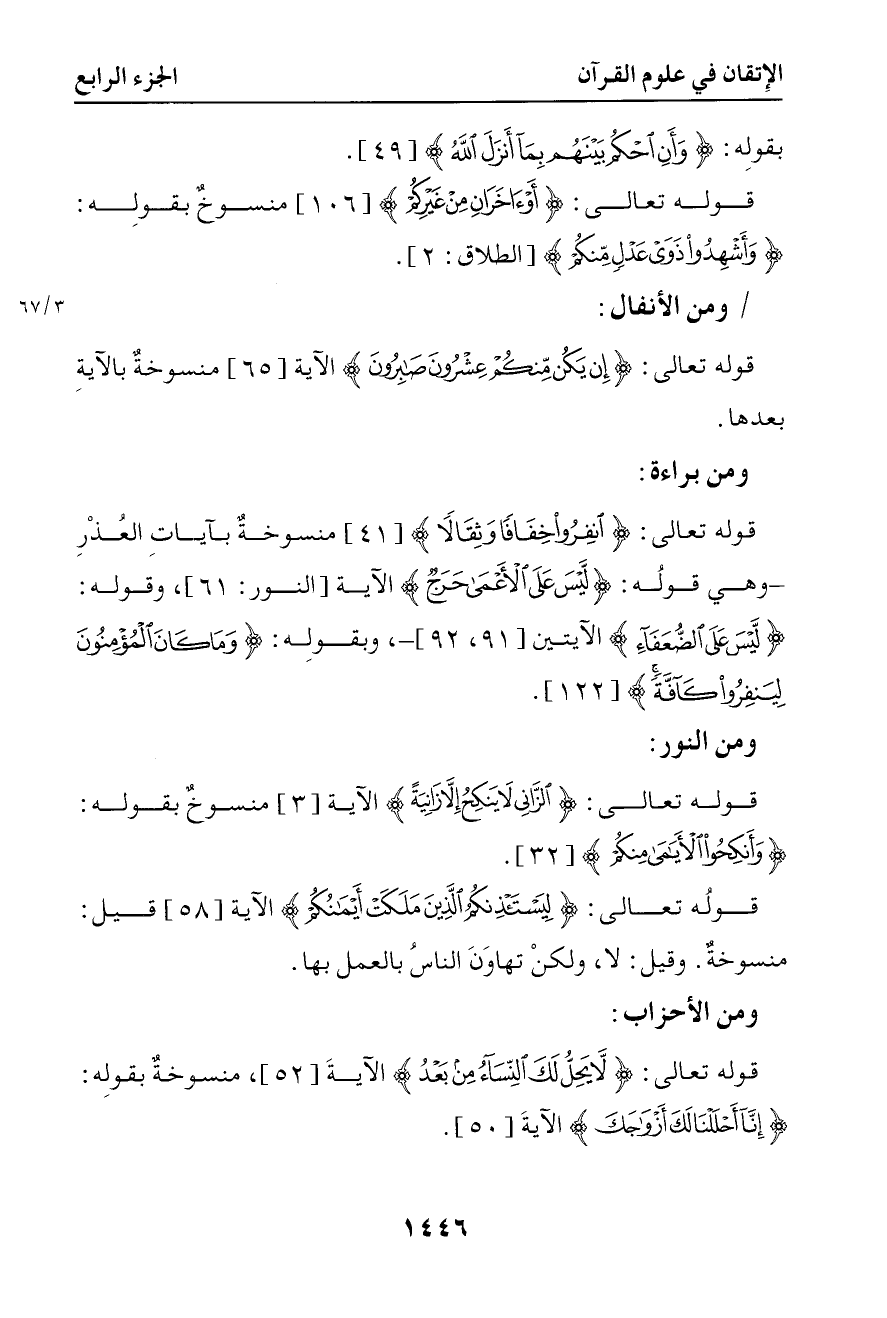 الإتقان في علوم القرآن
الجزء الرابع
بقولِه: ﴿ وَأَنِ ٱحۡكُم بَيۡنَهُم بِمَآ أَنزَلَ ٱللَّهُ ﴾ [٤٩].
قوله تعالى: ﴿ أَوۡ ءَاخَرَانِ مِنۡ غَيۡرِكُمۡ ﴾ [١٠٦] منسوخٌ بقولِه:
﴿ وَأَشۡهِدُواْ ذَوَيۡ عَدۡلٖ مِّنكُمۡ ﴾ [الطلاق: ٢].
/ ومن الأنفال:
٦٧/٣
قوله تعالى: ﴿ إِن يَكُن مِّنكُمۡ عِشۡرُونَ صَٰبِرُونَ ﴾ الآية [٦٥] منسوخةٌ بالآيةِ
بعدها.
ومن براءة:
قوله تعالى: ﴿ ٱنفِرُواْ خِفَافٗا وَثِقَالٗا ﴾ [٤١] منسوخةٌ بآياتِ العُذْرِ
–وهي قولُه: ﴿ لَّيۡسَ عَلَى ٱلۡأَعۡمَىٰ حَرَجٞ ﴾ الآية [النور: ٦١]، وقوله:
﴿ لَّيۡسَ عَلَى ٱلضُّعَفَآءِ ﴾ الآيتين [٩١، ٩٢]–، وبقولِه: ﴿ وَمَا كَانَ ٱلۡمُؤۡمِنُونَ
لِيَنفِرُواْ كَآفَّةٗۚ ﴾ [١٢٢].
ومن النور:
قوله تعالى: ﴿ ٱلزَّانِي لَا يَنكِحُ إِلَّا زَانِيَةً ﴾ الآية [٣] منسوخٌ بقوله:
﴿ وَأَنكِحُواْ ٱلۡأَيَٰمَىٰ مِنكُمۡ ﴾ [٣٢].
قولُه تعالى: ﴿ لِيَسۡتَـٔۡذِنكُمُ ٱلَّذِينَ مَلَكَتۡ أَيۡمَٰنُكُمۡ ﴾ الآية [٥٨] قيل:
منسوخةٌ. وقيل: لا، ولكنْ تهاوَنَ الناسُ بالعمل بها.
ومن الأحزاب:
قوله تعالى: ﴿ لَّا يَحِلُّ لَكَ ٱلنِّسَآءُ مِنۢ بَعۡدُ ﴾ الآيةَ [٥٢]، منسوخةٌ بقولِه:
﴿ إِنَّآ أَحۡلَلۡنَا لَكَ أَزۡوَٰجَكَ ﴾ الآيةَ [٥٠].
١٤٤٦